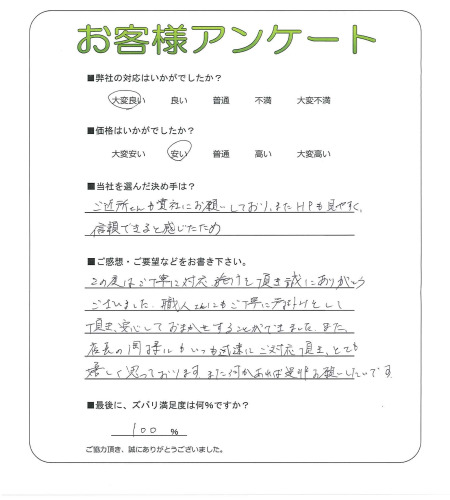 お客様アンケート
■弊社の対応はいかがでしたか？
大変良い 良い 普通 不満 大変不満
■価格はいかがでしたか？
大変安い 安い 普通 高い 大変高い
■当社を選んだ決め手は？
ご近所さんも貴社にお願いしており、またHPも見やすく、
信頼できると感じたため
■ご感想・ご要望などをお書き下さい。
この度はご丁寧に対応 頂き誠にありがとう
ございました。職人さんにもご丁寧に
頂き、安心しておまかせすることができました。また、
店長の 様にもいつも迅速にご対応頂き、とても
嬉しく思っております。また何かあれば是非お願いしたいです。
■最後に、ズバリ満足度は何％ですか？
100 ％
ご協力頂き、誠にありがとうございました。